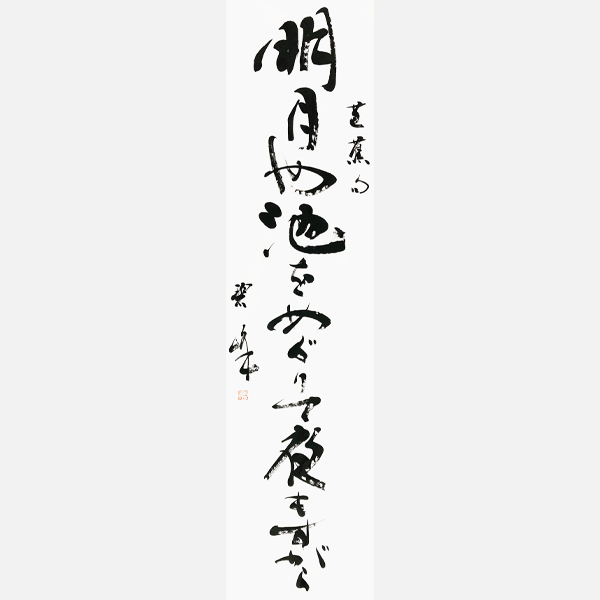 芭蕉句
明月や池をめぐりて夜もすがら
碧峰